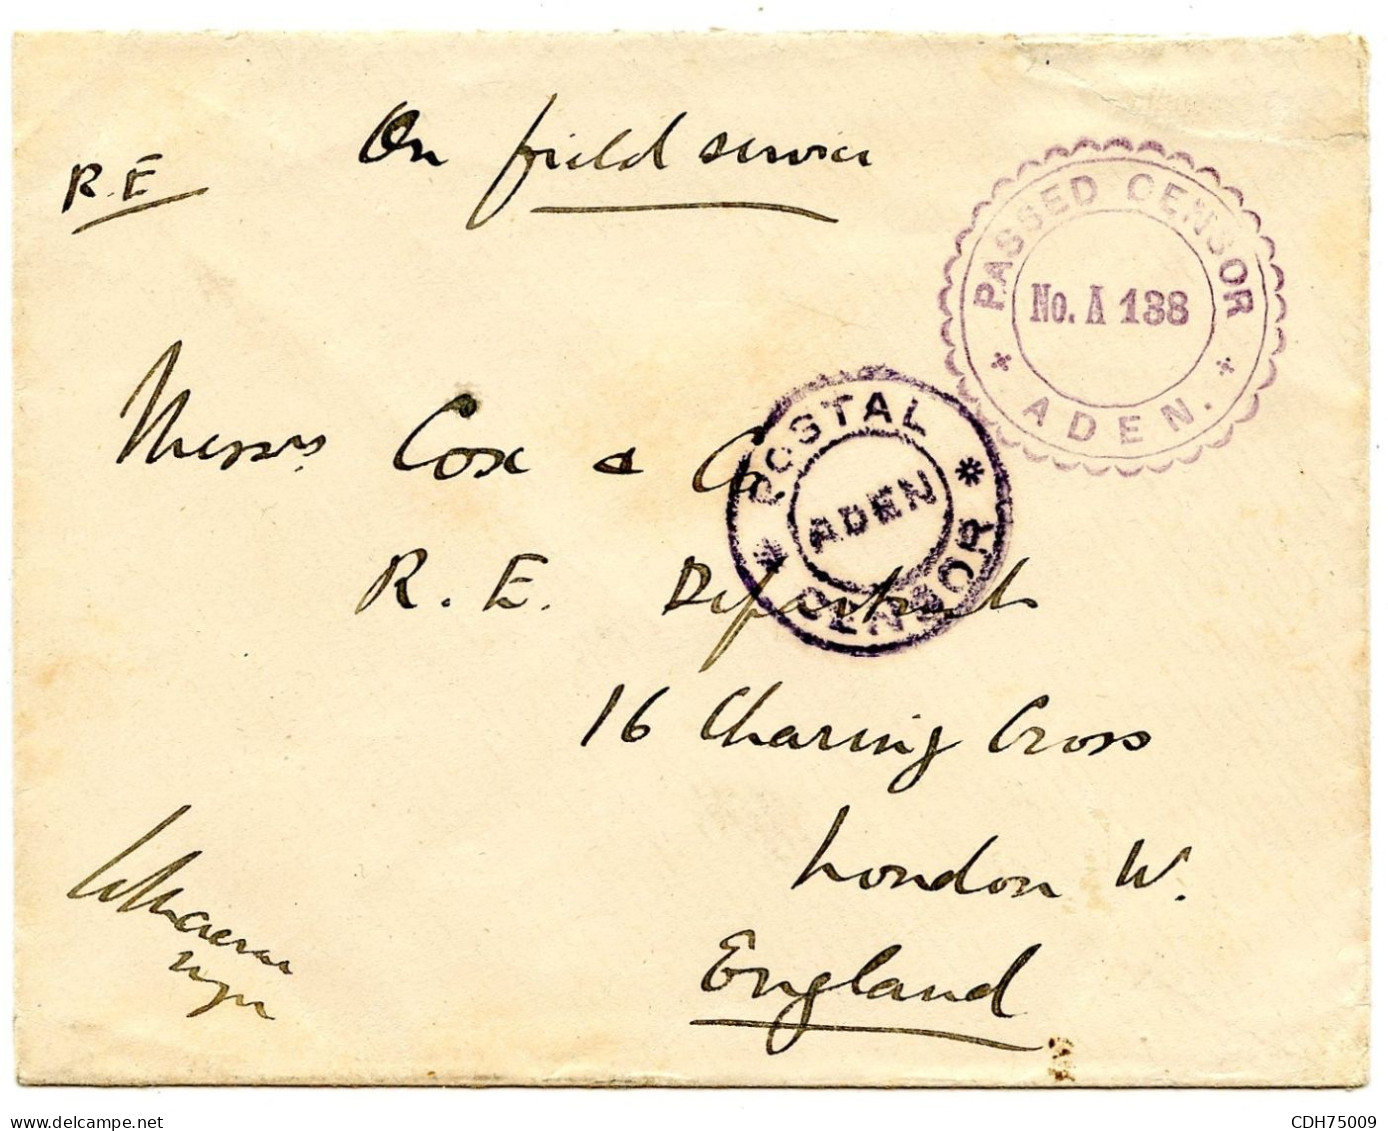 On field service
R.E
PASSED CENSOR
No. A 138
ADEN.
Messrs Cox & Co
POSTAL CENSOR
ADEN
R. E. Department
16 Charing Cross
London W.
England
delcampe.net
CDH75009